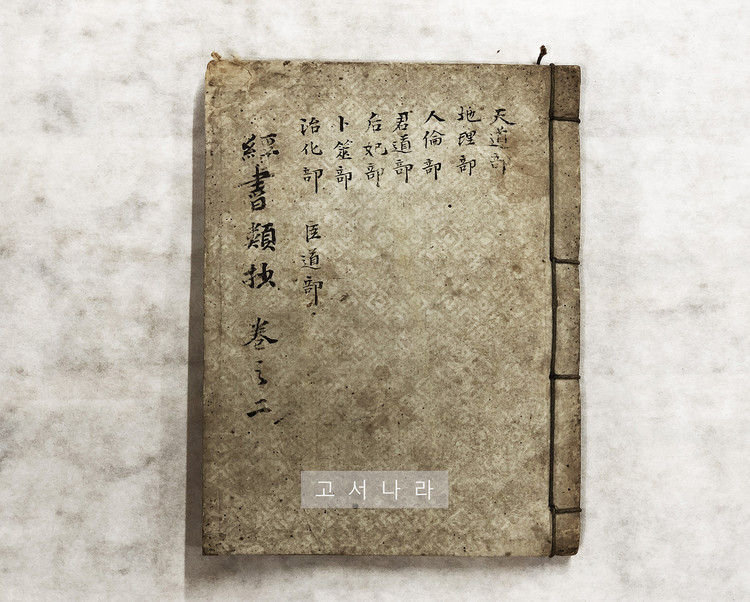 天道部
地理部
人倫部
君道部
后妃部
卜筮部
治化部 臣道部
經書類抄 卷之二
고서나라